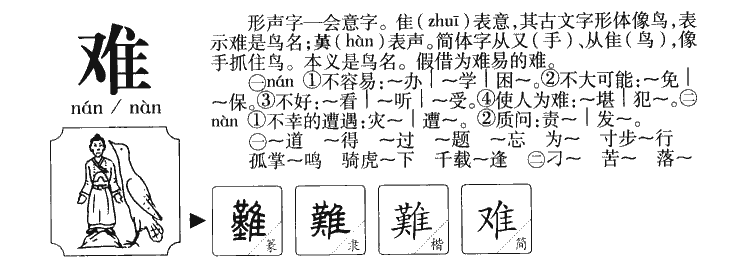 难
nán / nàn
形声字—会意字。隹(zhuī)表意,其古文字形体像鸟,表
示难是鸟名;𦰩(hàn)表声。简体字从又(手)、从隹(鸟),像
手抓住鸟。本义是鸟名。假借为难易的难。
㊀nán ①不容易:~办|~学|困~。②不大可能:~免|
~保。③不好:~看|~听|~受。④使人为难:~堪|犯~。㊁
nàn ①不幸的遭遇:灾~|遭~。②质问:责~|发~。
㊀~道 ~得 ~过 ~题 ~忘 为~ 寸步~行
孤掌~鸣 骑虎~下 千载~逢 ㊁刁~ 苦~ 落~
難 篆
難 隶
難 楷
难 简